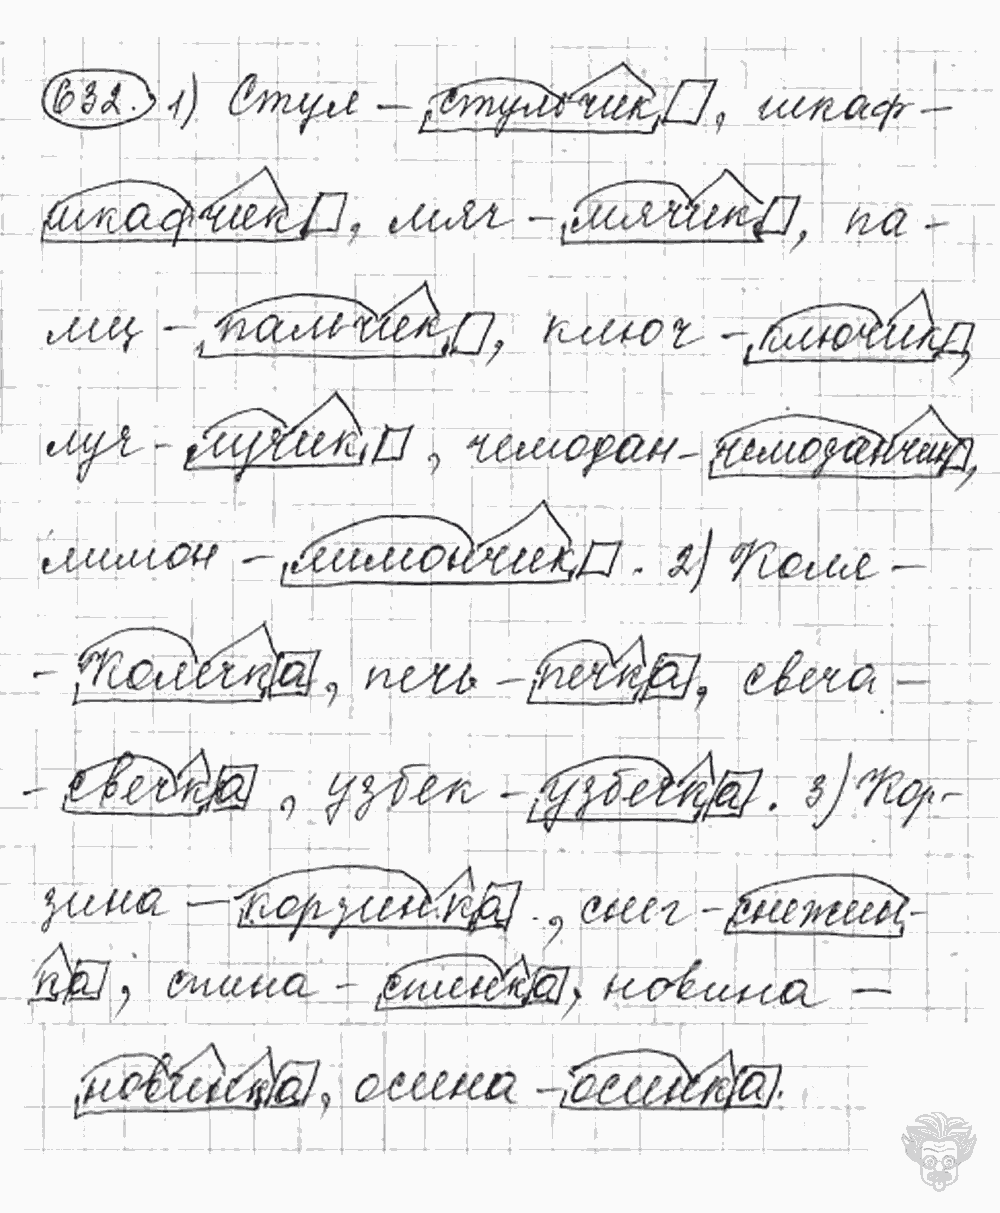 632. 1) Стул – стульчик, шкаф –
шкафчик, мяч – мячик, па-
лец – пальчик, ключ – ключик,
луч – лучик, чемодан – чемоданчик,
лимон – лимончик. 2) Коля –
– Колечка, печь – печка, свеча –
– свечка, узбек – узбечка. 3) Кор-
зина – корзинка, снег – снежин-
ка, спина – спинка, новина –
новинка, осина – осинка.